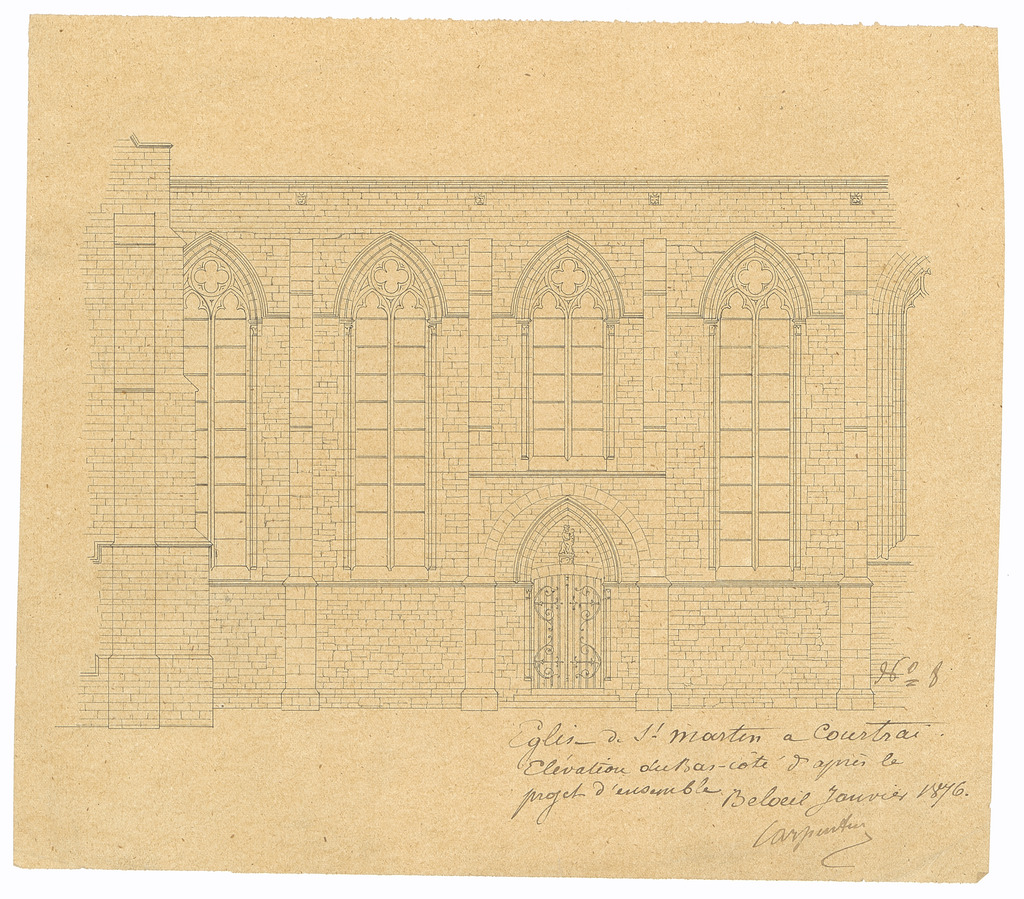 No 8
Eglise de St Martin a Courtrai.
Elévation du Bas-côté d'après le
projet d'ensemble. Beloeil Janvier 1876.
Carpentier